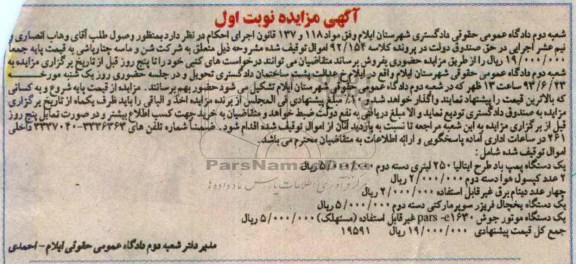 آگهی مزایده نوبت اول
شعبه دوم دادگاه عمومی حقوقی دادگستری شهرستان ایلام وفق مواد ۱۱۸ و ۱۳۷ قانون اجرای احکام در نظر دارد بمنظور وصول طلب آقای وهاب انصاری و
نیم عشر اجرایی در حق صندوق دولت در پرونده کلاسه ۹۲/۱۵۴ اموال توقیف شده مشروحه ذیل متعلق به شرکت شن و ماسه چنارباشی به قیمت پایه جمعا
۱۹/۰۰۰/۰۰۰ ریال را از طریق مزایده حضوری بفروش برساند متقاضیان می توانند درخواست های کتبی خود را تا پنج روز قبل از تاریخ برگزاری مزایده به
شعبه دوم دادگاه عمومی حقوقی شهرستان ایلام واقع در ایلام خ عدالت پشت ساختمان دادگستری تحویل و در جلسه حضوری روز یک شنبه مورخه
۹۳/۶/۲۳ ساعت ۱۳ ظهر که در شعبه دوم دادگاه عمومی حقوقی شهرستان ایلام تشکیل می شود حضور بهم برسانند. مزایده از قیمت پایه شروع و به کسانی
که بالاترین قیمت را پیشنهاد نمایند واگذار خواهد شد و ۱۰٪ مبلغ پیشنهادی فی المجلس از برنده مزایده اخذ و الباقی را باید ظرف یکماه از تاریخ برگزاری
مزایده به صندوق دادگستری تودیع نماید و الا مبلغ دریافتی به نفع دولت ضبط خواهد و متقاضیان به خرید جهت کسب اطلاع بیشتر و در صورت تمایل پنج روز
قبل از برگزاری مزایده به این شعبه مراجعه تا نسبت به بازدید آنان از اموال توقیف شده اقدام شود. ضمنا شماره تلفن های ۳۳۳۶۳۶۳-۳۳۳۷۰۴۰ داخلی
۲۶۱ در ساعات اداری آماده پاسخگویی و ارائه اطلاعات به متقاضیان محترم می باشد.
اموال توقیف شده شامل:
یک دستگاه پمپ باد طرح ایتالیا ۲۵۰ لیتری دسته دوم ۵/۰۰۰/۰۰۰ ریال
۲ عدد کپسول هوا دسته دوم ۲/۰۰۰/۰۰۰ ریال
چهار عدد دینام برق غیرقابل استفاده ۲/۰۰۰/۰۰۰ ریال
یک دستگاه یخچال فریزر سوپرمارکتی دسته دوم ۵/۰۰۰/۰۰۰ ریال
یک دستگاه موتور جوش pars -e۱۶۳۰ غیرقابل استفاده (مستهلک) ۵/۰۰۰/۰۰۰ ریال
جمع کل قیمت پیشنهادی ۱۹/۰۰۰/۰۰۰ ریال ۱۹۵۹۱
مدیر دفتر شعبه دوم دادگاه عمومی حقوقی ایلام - احمدی
ParsNamadData